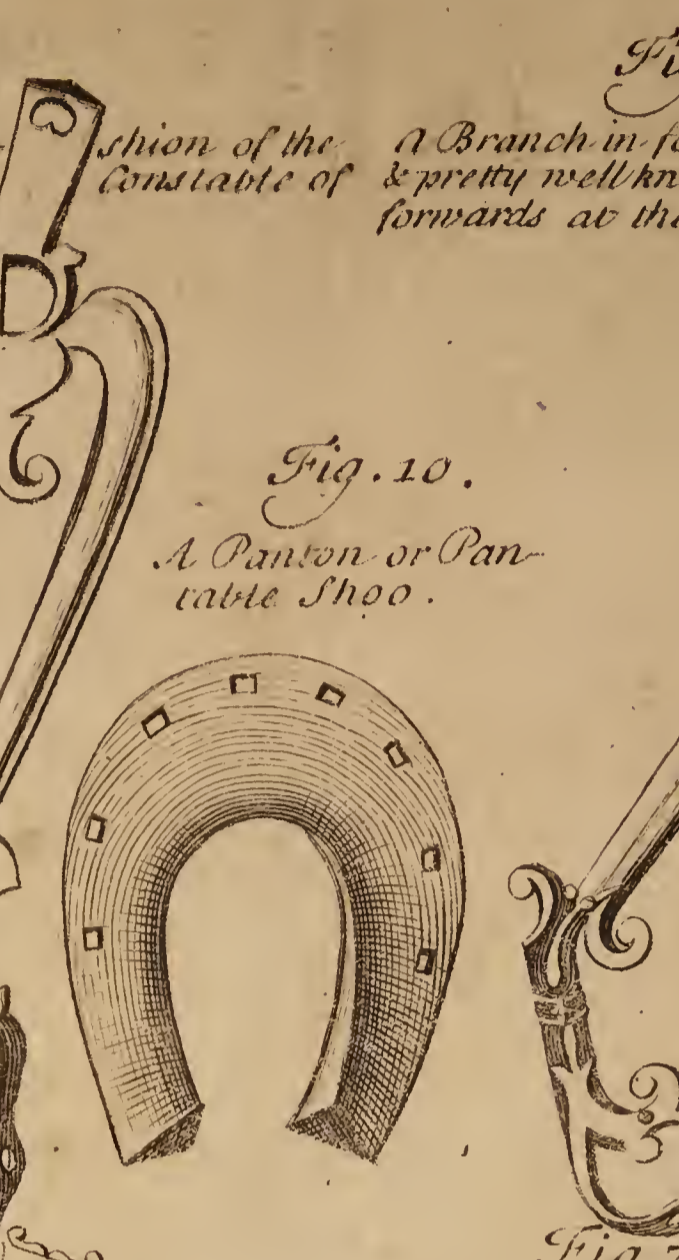 Fi
shion of the
Constable of
a Branch in fo
& pretty well kn
forwards at the
Fig. 10.
A Panton or Pan-
table Shoo.
Fig.